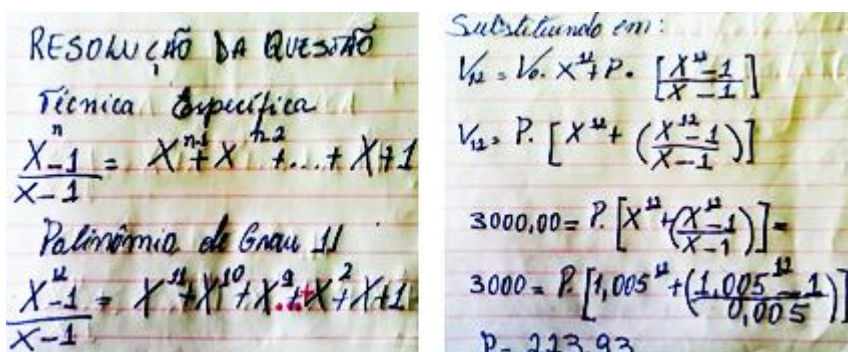 RESOLUÇÃO DA QUESTÃO
Técnica Específica
(x^n-1)/(x-1) = x^(n-1)+x^(n-2)+...+x+1
Polinômio de Grau 11
(x^12-1)/(x-1) = x^11+x^10+x^9+...+x^2+x+1
Substituindo em:
V12 = V0. x^12+P. [(x^12-1)/(x-1)]
V12= P. [x^12+ ((x^12-1)/(x-1))]
3000,00= P. [x^12+((x^12-1)/(x-1))]=
3000= P. [1,005^12+((1,005^12-1)/0,005)]
P= 223,93